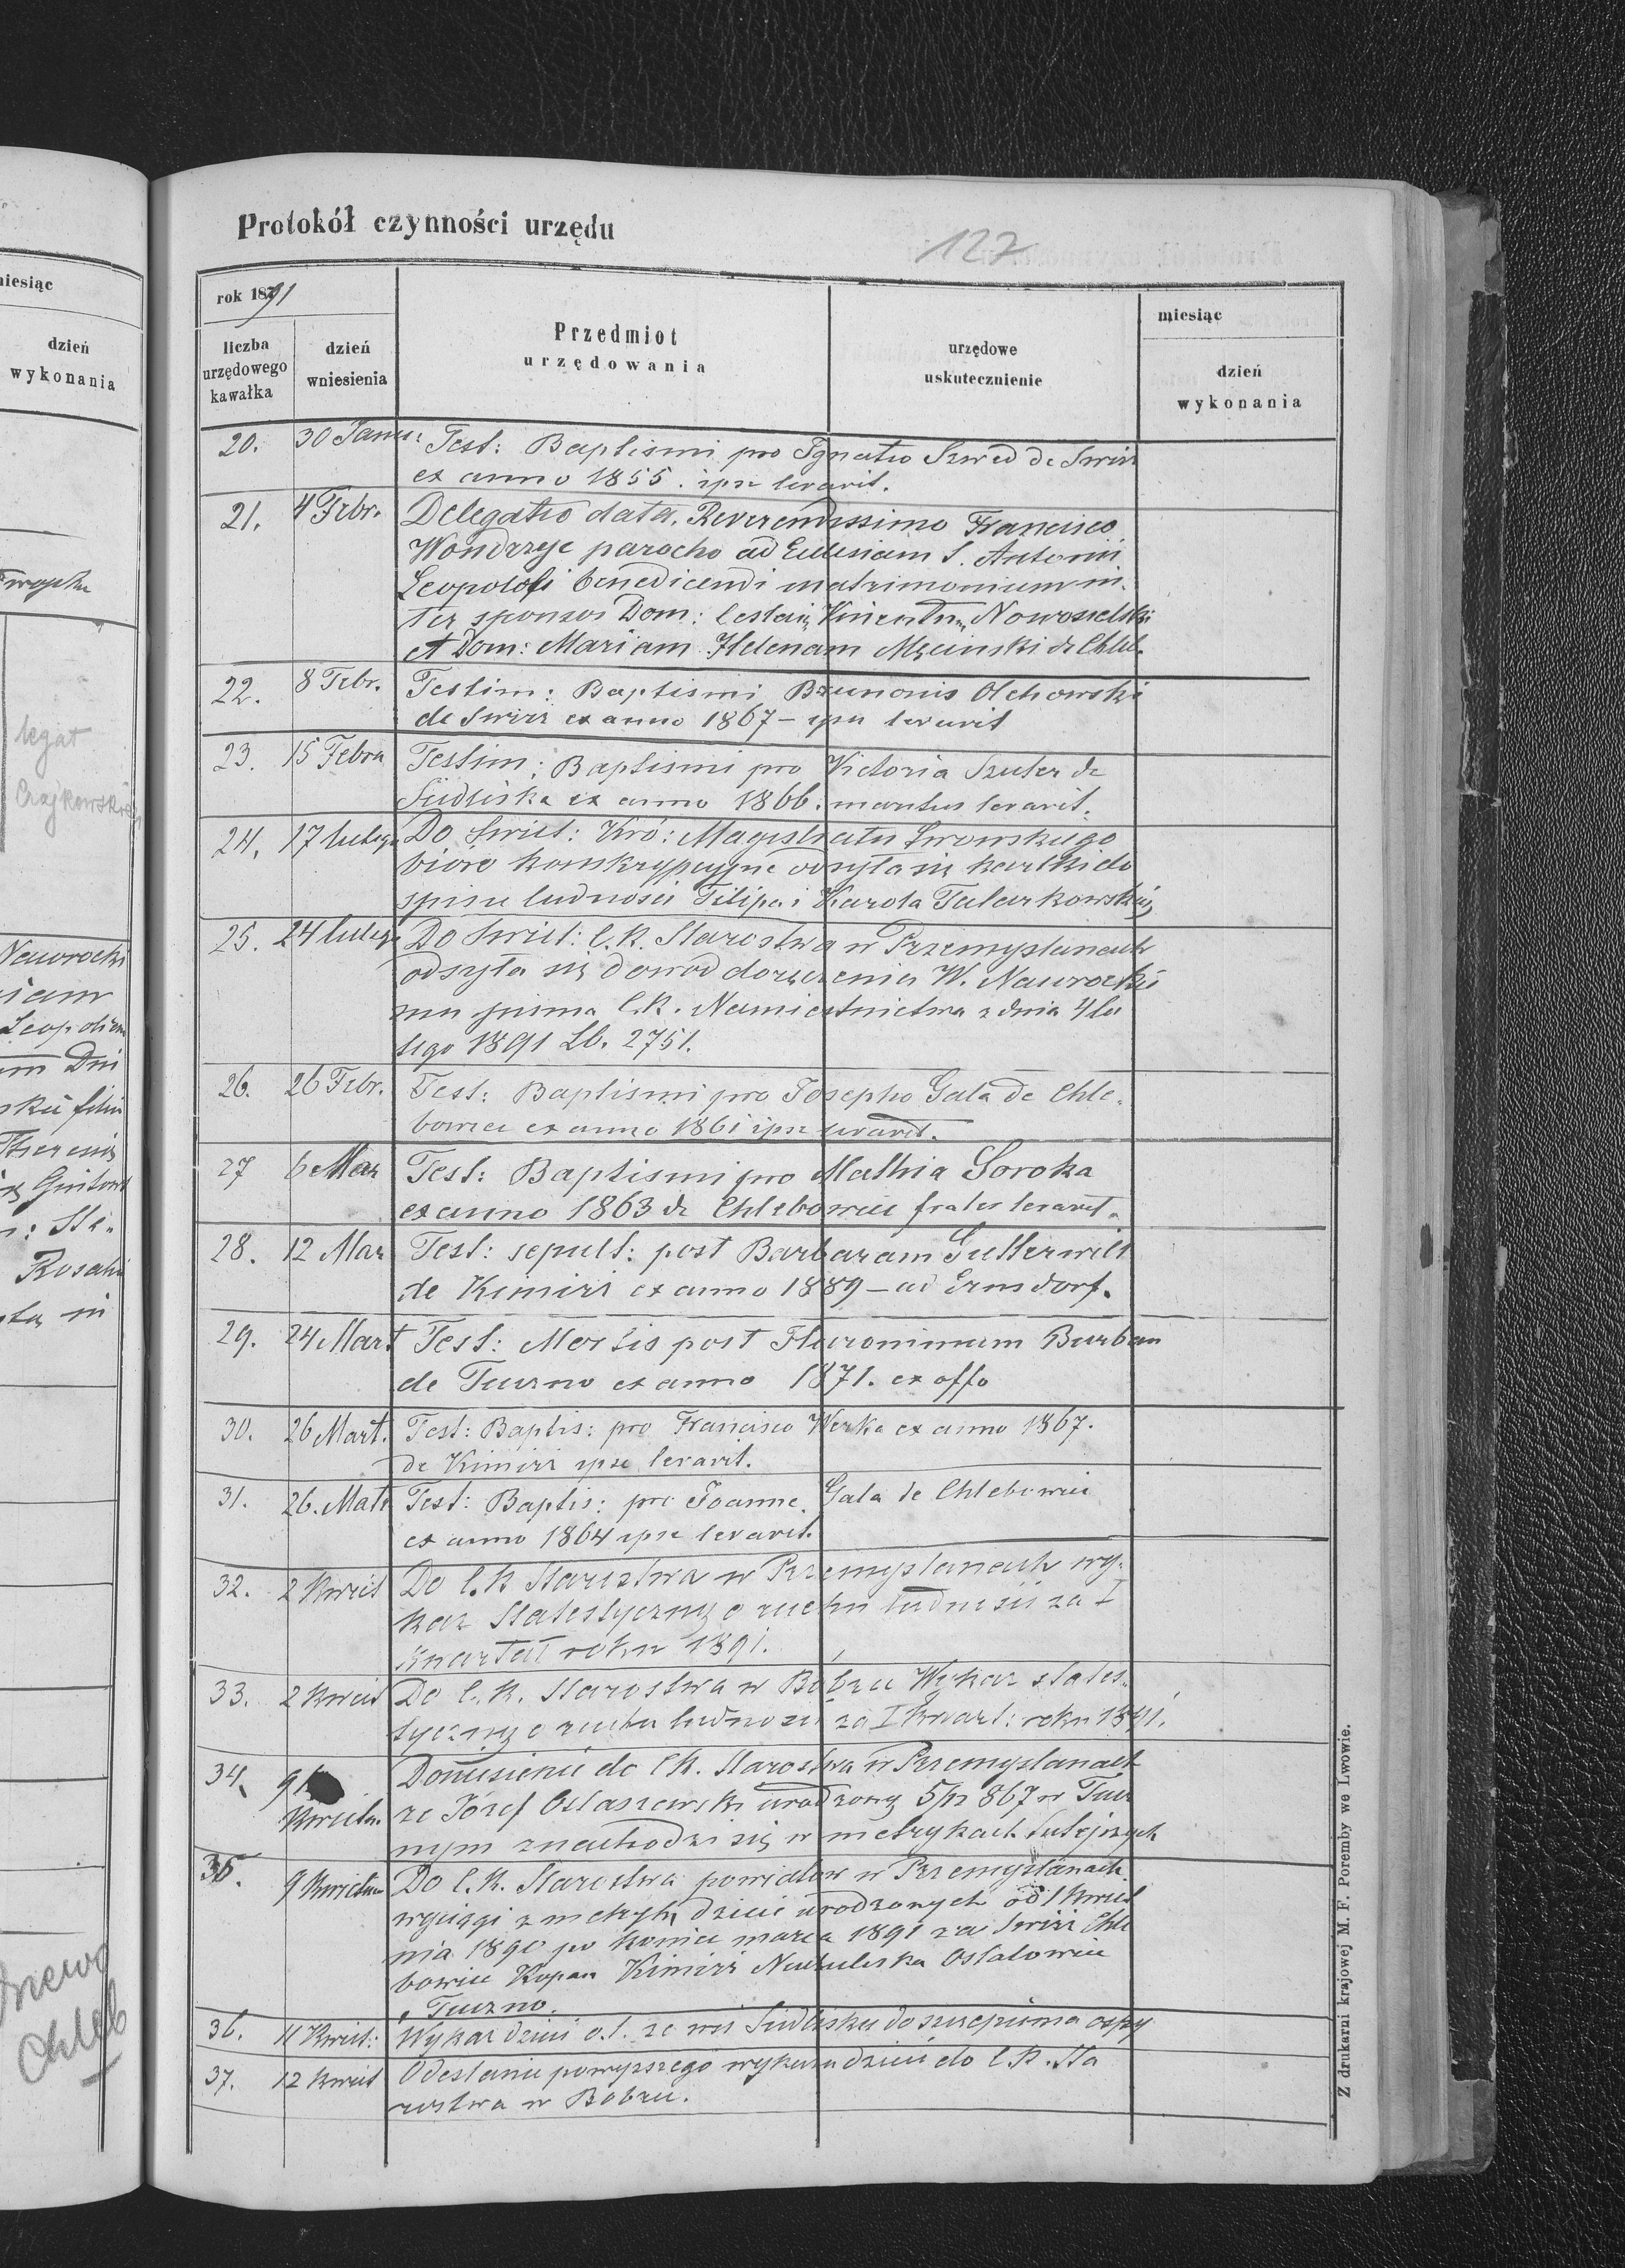 Protokół czynności urzędu
127
rok 1891
liczba urzędowego kawałka
dzień wniesienia
Przedmiot urzędowania
urzędowe uskutecznienie
miesiąc
dzień wykonania
20. 30 Janu: Test: Baptismi pro Ignatio Szwed de Swirz
ex anno 1855. ipse levavit.
21. 4 Febr. Delegatio data, Reverendissimo Francisco
Wondrzyc parocho ad Eclesiam S. Antonii
Leopoldi benedicendi matrimonium in
ter sponsos Dom: Vincentium Nowosielski
et Dom: Mariam Helenam Męcinski de Chleb.
22. 8 Febr. Testim: Baptismi Brunonis Olchowski
de Swirz ex anno 1867 – ipse levavit
23. 15 Febra Testim: Baptismi pro Victoria Szuter de
Siedliska ex anno 1866. maritus levavit.
24. 17 lutego Do Swiet: Kró: Magistratu Lwowskiego
bióro konskrypcyjne odsyła się kartki do
spisu ludności Filipa i Karola Talarkowskich
25. 24 lutego Do Swiet: C.K. Starostwa w Przemyslanach
odsyła się dowód doręczenia W. Nawrockie
mu pisma C.K. Namiestnictwa z dnia 4 lu
tego 1891 Lb. 2751.
26. 26 Febr. Test: Baptismi pro Josepho Gala de Chle-
bowice ex anno 1861 ipse levavit.
27 6 Mar Test: Baptismi pro Mathia Soroka
ex anno 1863 de Chlebowice frater levavit.
28. 12 Mar Test: sepult: post Barbaram
de Kimirz ex anno 1889 – ad Ernsdorf.
29. 24 Mart Test: Mortis post Hieronimum Burban
de Tuczno ex anno 1871. ex offo
30. 26 Mart. Test: Baptis: pro Francisco Werka ex anno 1867.
de Kimirz ipse levavit.
31. 26. Mart Test: Baptis: pro Joanne Gala de Chlebowice
ex anno 1864 ipse levavit.
32. 2 Kwiet Do C.K Starostwa w Przemyslanach wy-
kaz statestyczny o ruchu ludności za I
kwartał roku 1891.
33. 2 Kwiet Do C.K. Starostwa w Bobrce Wykaz states-
tyczny o ruchu ludności za I kwart: roku 1891.
34. 9 Kwietn. Doniesienie do C.K. Starostwa w Przemyslanach
ze Józef Ostaszewski urodzony 867 w Tucz
nym znachodzi się w metrykach tutejszych
35. 9 Kwietn Do C.K. Starostwa powiatow w Przemyslanach
wyciągi z metryk dzieci urodzonych od 1 Kwiet
nia 1890 po koniec marca 1891 za Swirz Chle
bowice Kopań Kimirz Niedzieliska Ostalowice
, Tuczno.
36. 11 Kwiet: Wykaz dzieci o.ł. ze wsi Siedliska do szczepienia ospy
37. 12 Kwiet Odesłanie powyższego wykazu dzieci do C.K. Sta
rostwa w Bobrce.
Z drukarni krajowej M. F. Poremby we Lwowie.
miesiąc
dzień
wykonania
legat
Czajkowskich
Nawrocki
Chleb